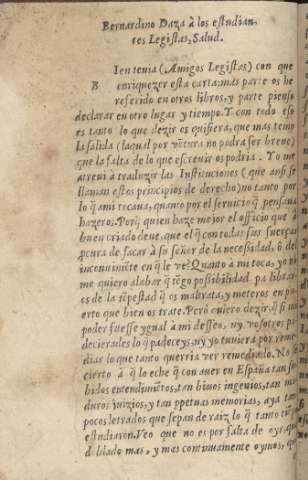 Bernardino Daza à los estudian-
tes Legistas, Salud.
BIen tenia (Amigos Legistas) con que
enriquezer esta carta: mas parte os he
referido en otros libros, y parte pienso
declarar en otro lugar y tiempo. Y con todo eso
es tanto lo que dezir os quisiera, que mas temo
la salida (la qual por vẽtura no podra ser breve)
que la falta de lo que escrevir os podria. Yo me
atrevi a traduzir las Instituciones (que ansi se
llaman estos principios de derecho) no tanto por
lo q̃ a mi tocava, quanto por el servicio q̃ pensava
hazeros. Porq̃ quien haze mejor el officio que à
buen criado deve, que el q̃ con todas sus fuerças
ꝓcura de sacar à su señor de la necesidad, ò del
inconviniẽte en q̃ le ve? Quanto à mi toca, yo no
me quiero alabar q̃ tẽgo possibilidad pa librar
os de la tẽpestad q̃ os maltrata, y meteros en pu
erto que bien os trate. Pero quiero dezir, q̃ si mi
poder fuesse ygual à mi desseo, ny vosotros pa
decierades lo q̃ padeceys, ny yo tuviera por reme
diar lo que tanto querria ver remediado. No
cierto à q̃ lo eche q̃ con aver en España tan su
bidos entendimiẽtos, tan bivos ingenios, tan ma
duros juizios, y tan ꝑpetuas memorias, aya tan
pocos letrados que sepan de raiz lo q̃ tanto
estudiaron. Veo que no es por falta de oyr, q̃
doblado mas, y mas continuamente oymos, q̃